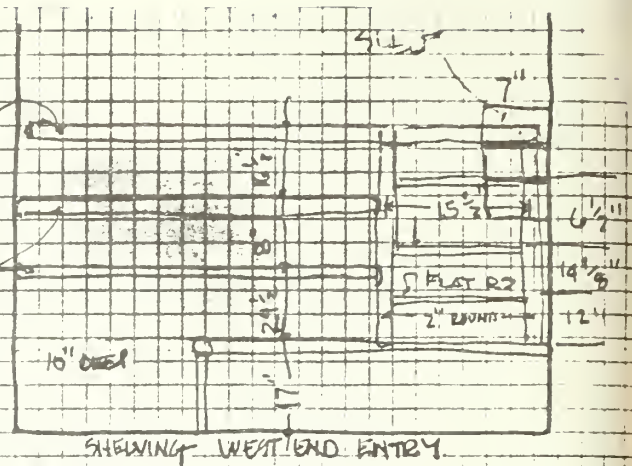 7"
15½"
6½"
8"
14⅛"
FLAT R2
2" ROUND
12"
24½
10" DEEP
17"
SHELVING WEST END ENTRY